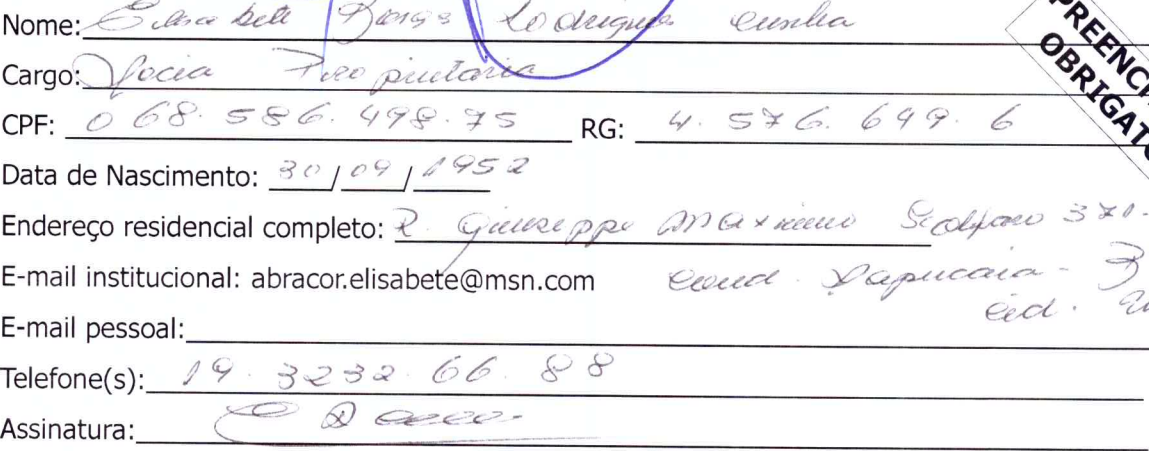 Nome: Elisabete Borges Rodrigues Cunha
PREENCH
OBRIGATO
Cargo: Socia Proprietaria
CPF: 068.586.498.75 RG: 4.576.649.6
Data de Nascimento: 30/09/1952
Endereço residencial completo: R. Giuseppe Maximo Scolfaro 370.
E-mail institucional: abracor.elisabete@msn.com Cond. Sapucaia -
E-mail pessoal:
Telefone(s): 19.3232.66.88
Assinatura: